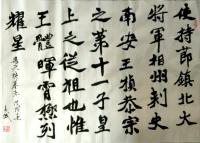 使持節鎮北大
將軍相州刺史
南安王楨恭宗
之第十一子皇
上之從祖也惟
王體暉霄極列
耀星